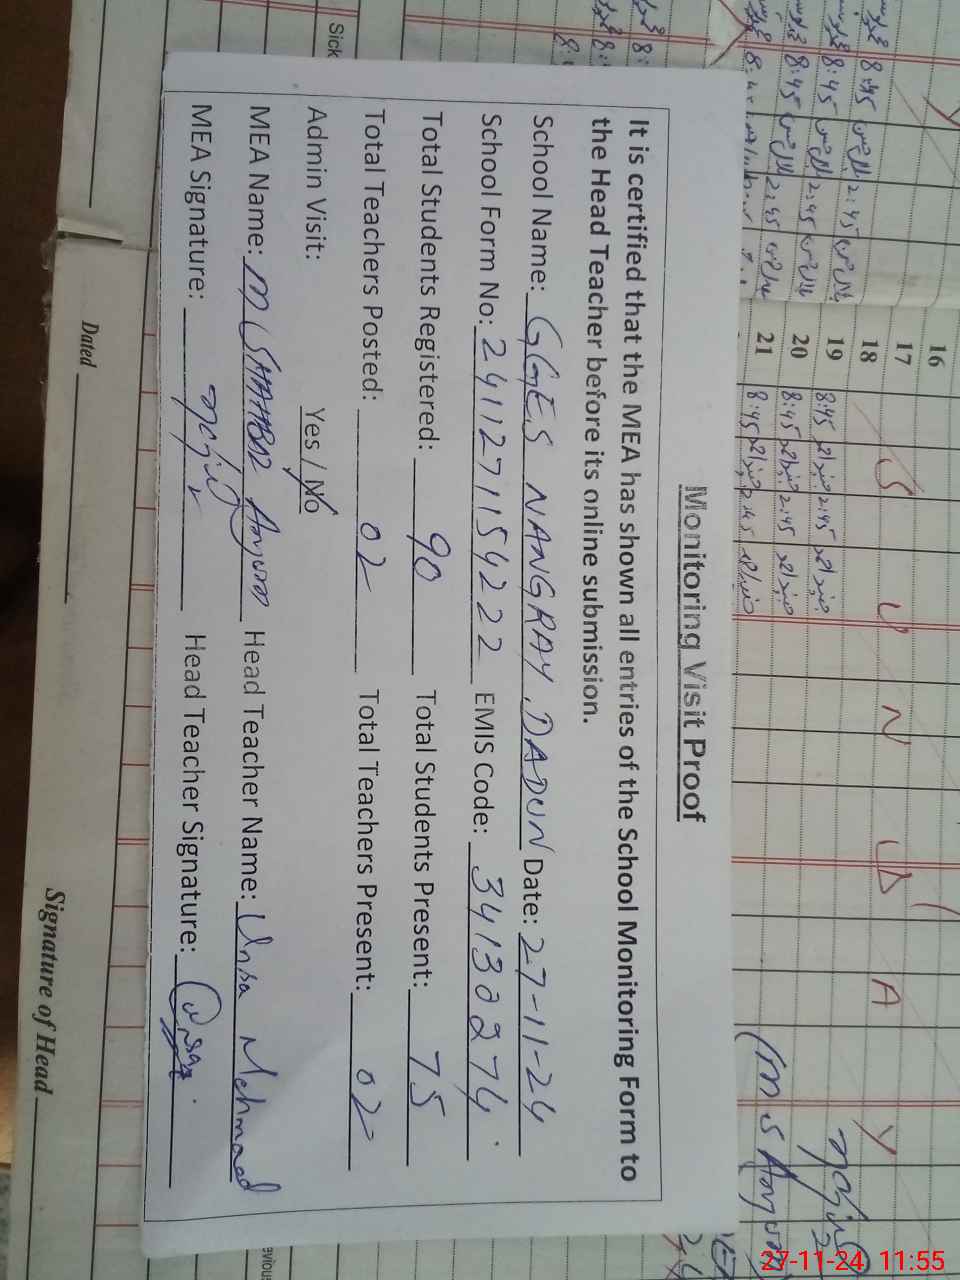 Monitoring Visit Proof
It is certified that the MEA has shown all entries of the School Monitoring Form to
the Head Teacher before its online submission.
School Name: GGES NANGRAY, DADUN Date: 27-11-24
School Form No: 241127115422 2 EMIS Code: 34132274
Total Students Registered: 90 Total Students Present: 75
Total Teachers Posted: 02 Total Teachers Present: 02
Admin Visit: Yes / No
MEA Name: M SHAHBAZ Anjum Head Teacher Name: Unsa Mehmood
MEA Signature: Head Teacher Signature: Unsa
Sick
Dated
Signature of Head
16
17
18 S U N D A Y
19 8:45 2:45
20 8:45 2:45
21 8:45 2:45
8:45 2:45
8:45 2:45
8:45 2:45
(M S Anjum)
27-11-24 11:55